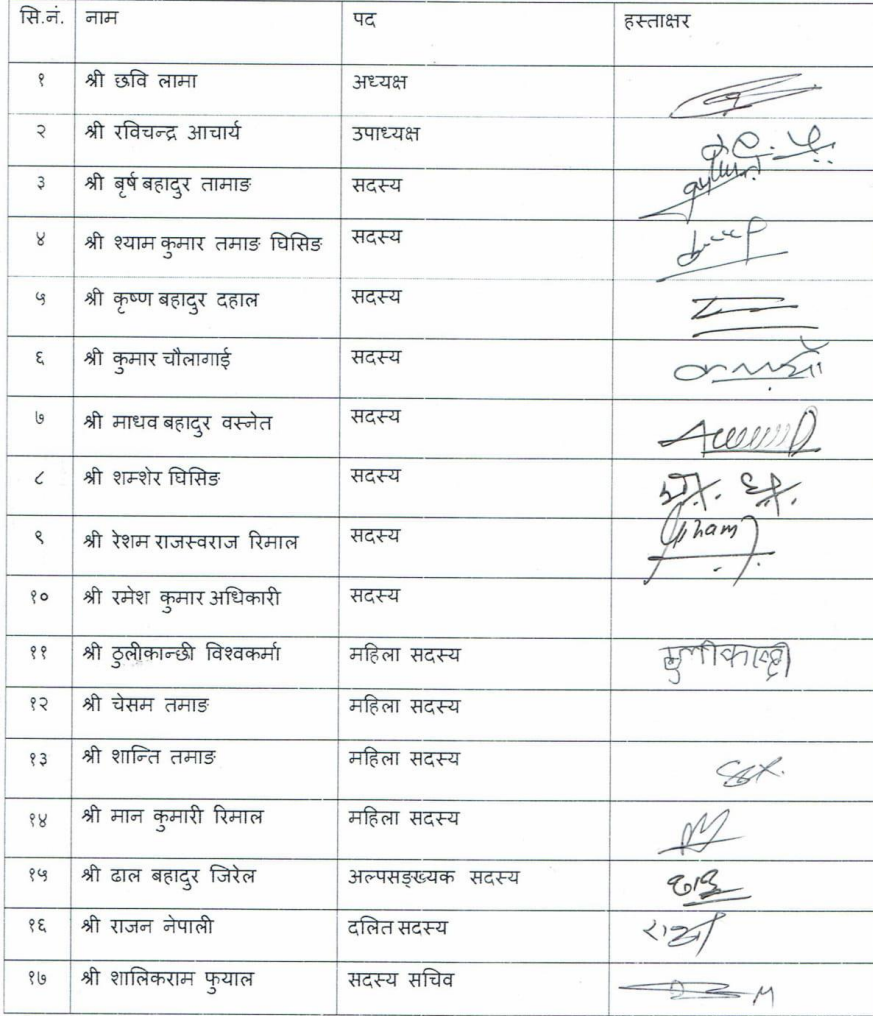 सि.नं. नाम पद हस्ताक्षर
१ श्री छवि लामा अध्यक्ष
२ श्री रविचन्द्र आचार्य उपाध्यक्ष
३ श्री बृर्ष बहादुर तामाङ सदस्य
४ श्री श्याम कुमार तमाङ घिसिङ सदस्य
५ श्री कृष्ण बहादुर दहाल सदस्य
६ श्री कुमार चौलागाई सदस्य
७ श्री माधव बहादुर वस्नेत सदस्य
८ श्री शम्शेर घिसिङ सदस्य
९ श्री रेशम राजस्वराज रिमाल सदस्य
१० श्री रमेश कुमार अधिकारी सदस्य
११ श्री ठुलीकान्छी विश्वकर्मा महिला सदस्य ठुलीकान्छी
१२ श्री चेसम तमाङ महिला सदस्य
१३ श्री शान्ति तमाङ महिला सदस्य
१४ श्री मान कुमारी रिमाल महिला सदस्य
१५ श्री ढाल बहादुर जिरेल अल्पसङ्ख्यक सदस्य
१६ श्री राजन नेपाली दलित सदस्य
१७ श्री शालिकराम फुयाल सदस्य सचिव